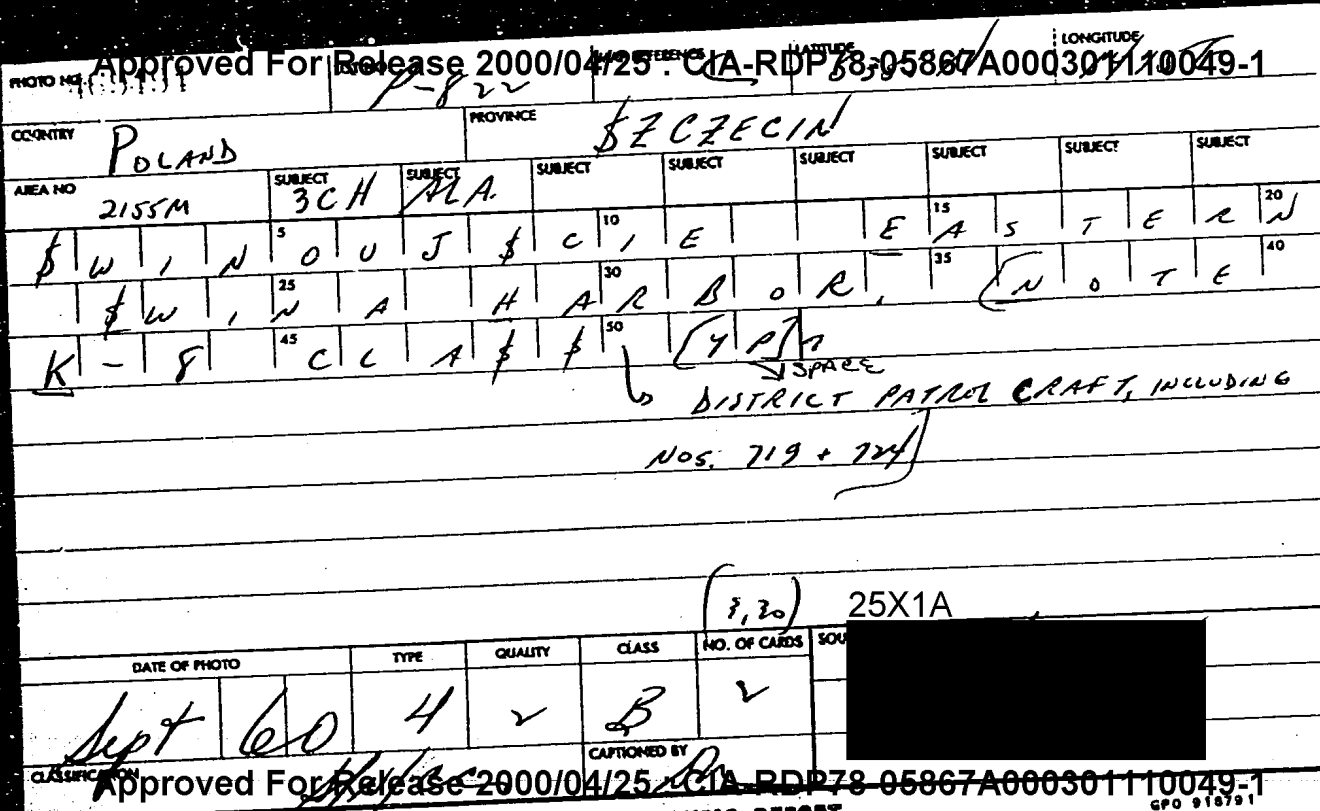 Approved For Release 2000/04/25 : CIA-RDP78-05867A000301110049-1
PHOTO NO. P-822 LATITUDE LONGITUDE
COUNTRY POLAND PROVINCE $ZCZECIN
AREA NO 2155M SUBJECT 3CH SUBJECT ALA. SUBJECT SUBJECT SUBJECT SUBJECT SUBJECT SUBJECT
$WINOUJ$CIE EASTERN
5 10 15 20
$WINA HARBOR, (NOTE
25 30 35 40
K-8 CLA$$ [YP]
45 50
SPACE
DISTRICT PATROL CRAFT, INCLUDING
NOS. 719 + 724)
25X1A
DATE OF PHOTO TYPE QUALITY CLASS NO. OF CARDS
Sept 60 4 2 B 2
CLASSIFICATION CAPTIONED BY
Approved For Release 2000/04/25 : CIA-RDP78-05867A000301110049-1
GPO 918791